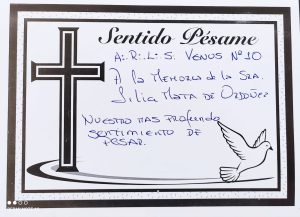 Sentido Pésame
A∴R∴L∴S∴ VENUS Nº 10
A la MEMORIA DE LA SRA.
LILIA MATA DE ORDOÑEZ
NUESTRO MAS PROFUNDO
SENTIMIENTO DE
PESAR.